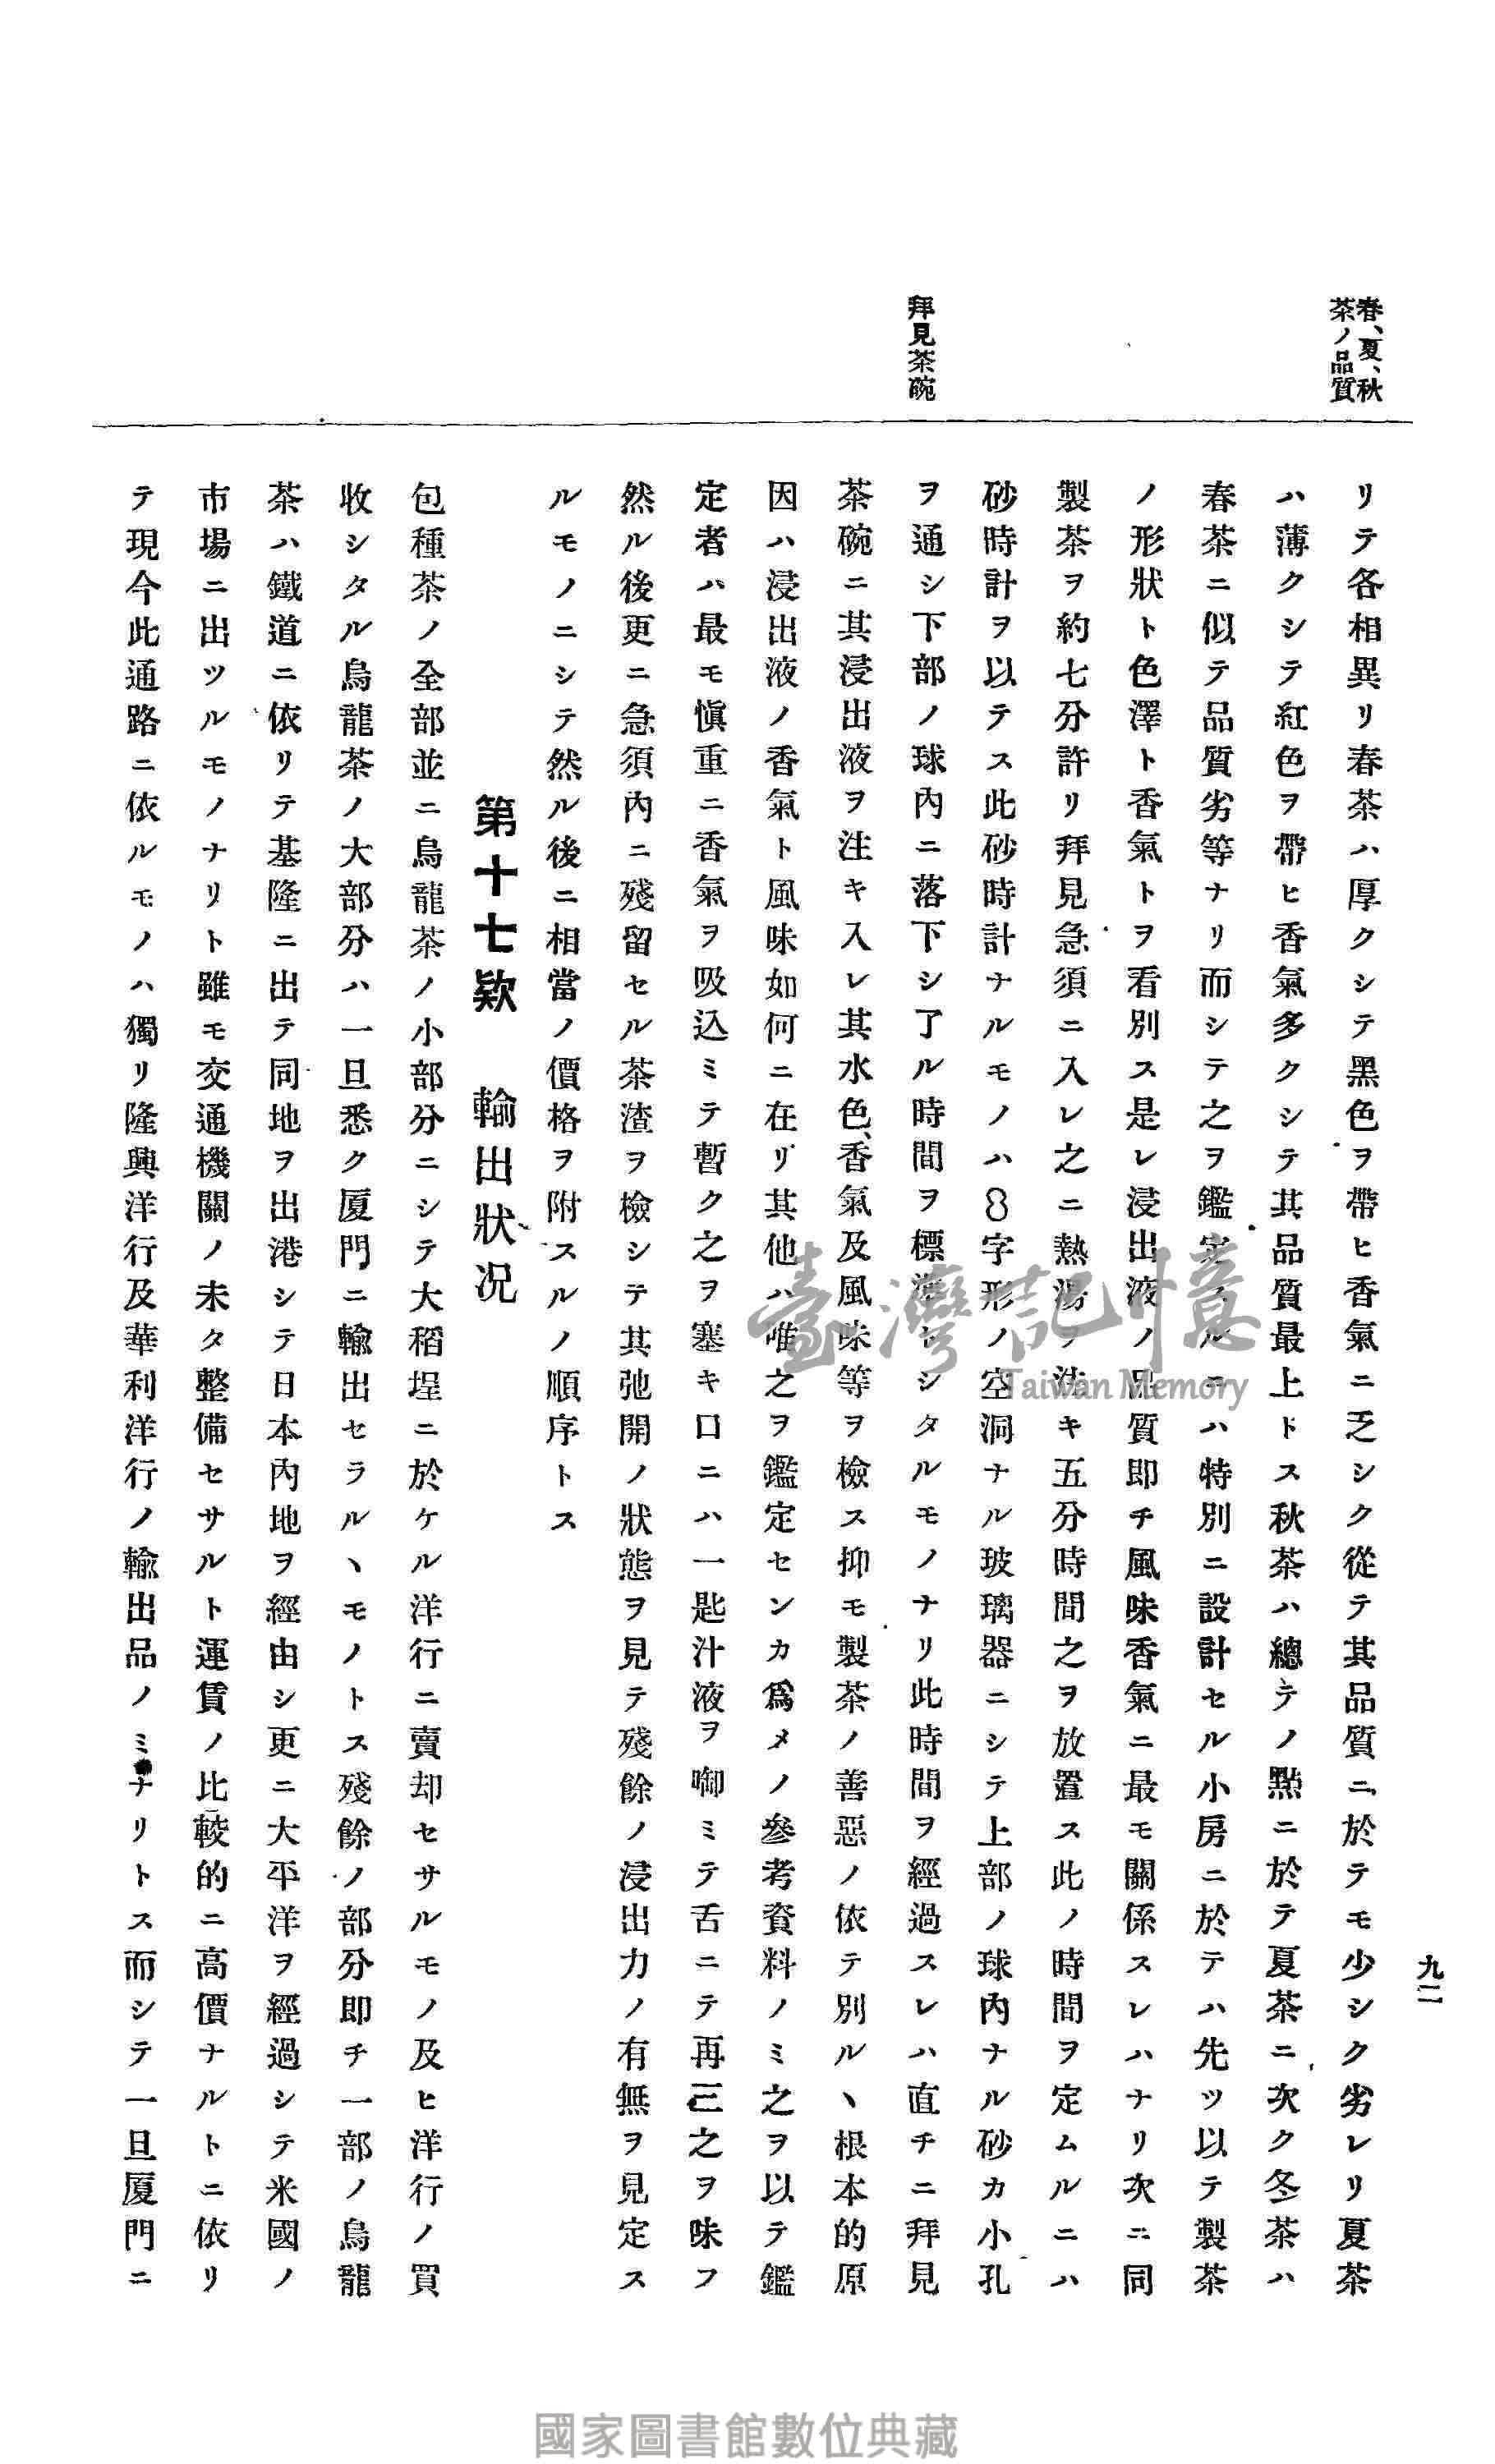 九二
春、夏、秋
茶ノ品質
拜見茶碗
リテ各相異リ春茶ハ厚クシテ黑色ヲ帶ヒ香氣ニ乏シク從テ其品質ニ於テモ少シク劣レリ夏茶
ハ薄クシテ紅色ヲ帶ヒ香氣多クシテ其品質最上トス秋茶ハ總テノ點ニ於テ夏茶ニ次ク冬茶ハ
春茶ニ似テ品質劣等ナリ而シテ之ヲ鑑定スルニハ特別ニ設計セル小房ニ於テハ先ツ以テ製茶
ノ形狀ト色澤ト香氣トヲ看別ス是レ浸出液ノ品質即チ風味香氣ニ最モ關係スレハナリ次ニ同
製茶ヲ約七分許リ拜見急須ニ入レ之ニ熱湯ヲ注キ五分時間之ヲ放置ス此ノ時間ヲ定ムルニハ
砂時計ヲ以テス此砂時計ナルモノハ8字形ノ空洞ナル玻璃器ニシテ上部ノ球內ナル砂カ小孔
ヲ通シ下部ノ球內ニ落下シ了ル時間ヲ標準トシタルモノナリ此時間ヲ經過スレハ直チニ拜見
茶碗ニ其浸出液ヲ注キ入レ其水色、香氣及風味等ヲ檢ス抑モ製茶ノ善惡ノ依テ別ルヽ根本的原
因ハ浸出液ノ香氣ト風味如何ニ在リ其他ハ唯之ヲ鑑定センカ爲メノ參考資料ノミ之ヲ以テ鑑
定者ハ最モ愼重ニ香氣ヲ吸込ミテ暫ク之ヲ塞キ口ニハ一匙汁液ヲ啣ミテ舌ニテ再三之ヲ味フ
然ル後更ニ急須內ニ殘留セル茶渣ヲ檢シテ其弛開ノ狀態ヲ見テ殘餘ノ浸出力ノ有無ヲ見定ス
ルモノニシテ然ル後ニ相當ノ價格ヲ附スルノ順序トス
第十七欵 輸出狀况
包種茶ノ全部並ニ烏龍茶ノ小部分ニシテ大稻埕ニ於ケル洋行ニ賣却セサルモノ及ヒ洋行ノ買
收シタル烏龍茶ノ大部分ハ一旦悉ク厦門ニ輸出セラルヽモノトス殘餘ノ部分即チ一部ノ烏龍
茶ハ鐵道ニ依リテ基隆ニ出テ同地ヲ出港シテ日本內地ヲ經由シ更ニ大平洋ヲ經過シテ米國ノ
市場ニ出ツルモノナリト雖モ交通機關ノ未タ整備セサルト運賃ノ比較的ニ高價ナルトニ依リ
テ現今此通路ニ依ルモノハ獨リ隆興洋行及華利洋行ノ輸出品ノミナリトス而シテ一旦厦門ニ
臺灣記憶
Taiwan Memory
國家圖書館數位典藏